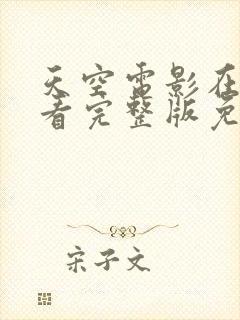 天空雷影在
看完整版免
宋子文